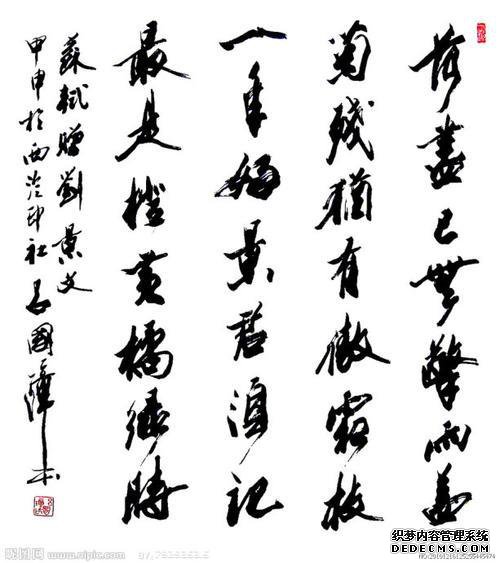 荷盡已無擎雨蓋
菊殘猶有傲霜枝
一年好景君須記
最是橙黃橘綠時
蘇軾贈劉景文
甲申於西泠印社呂國璋
昵图网 www.nipic.com
织梦内容管理系统
DEDECMS.COM